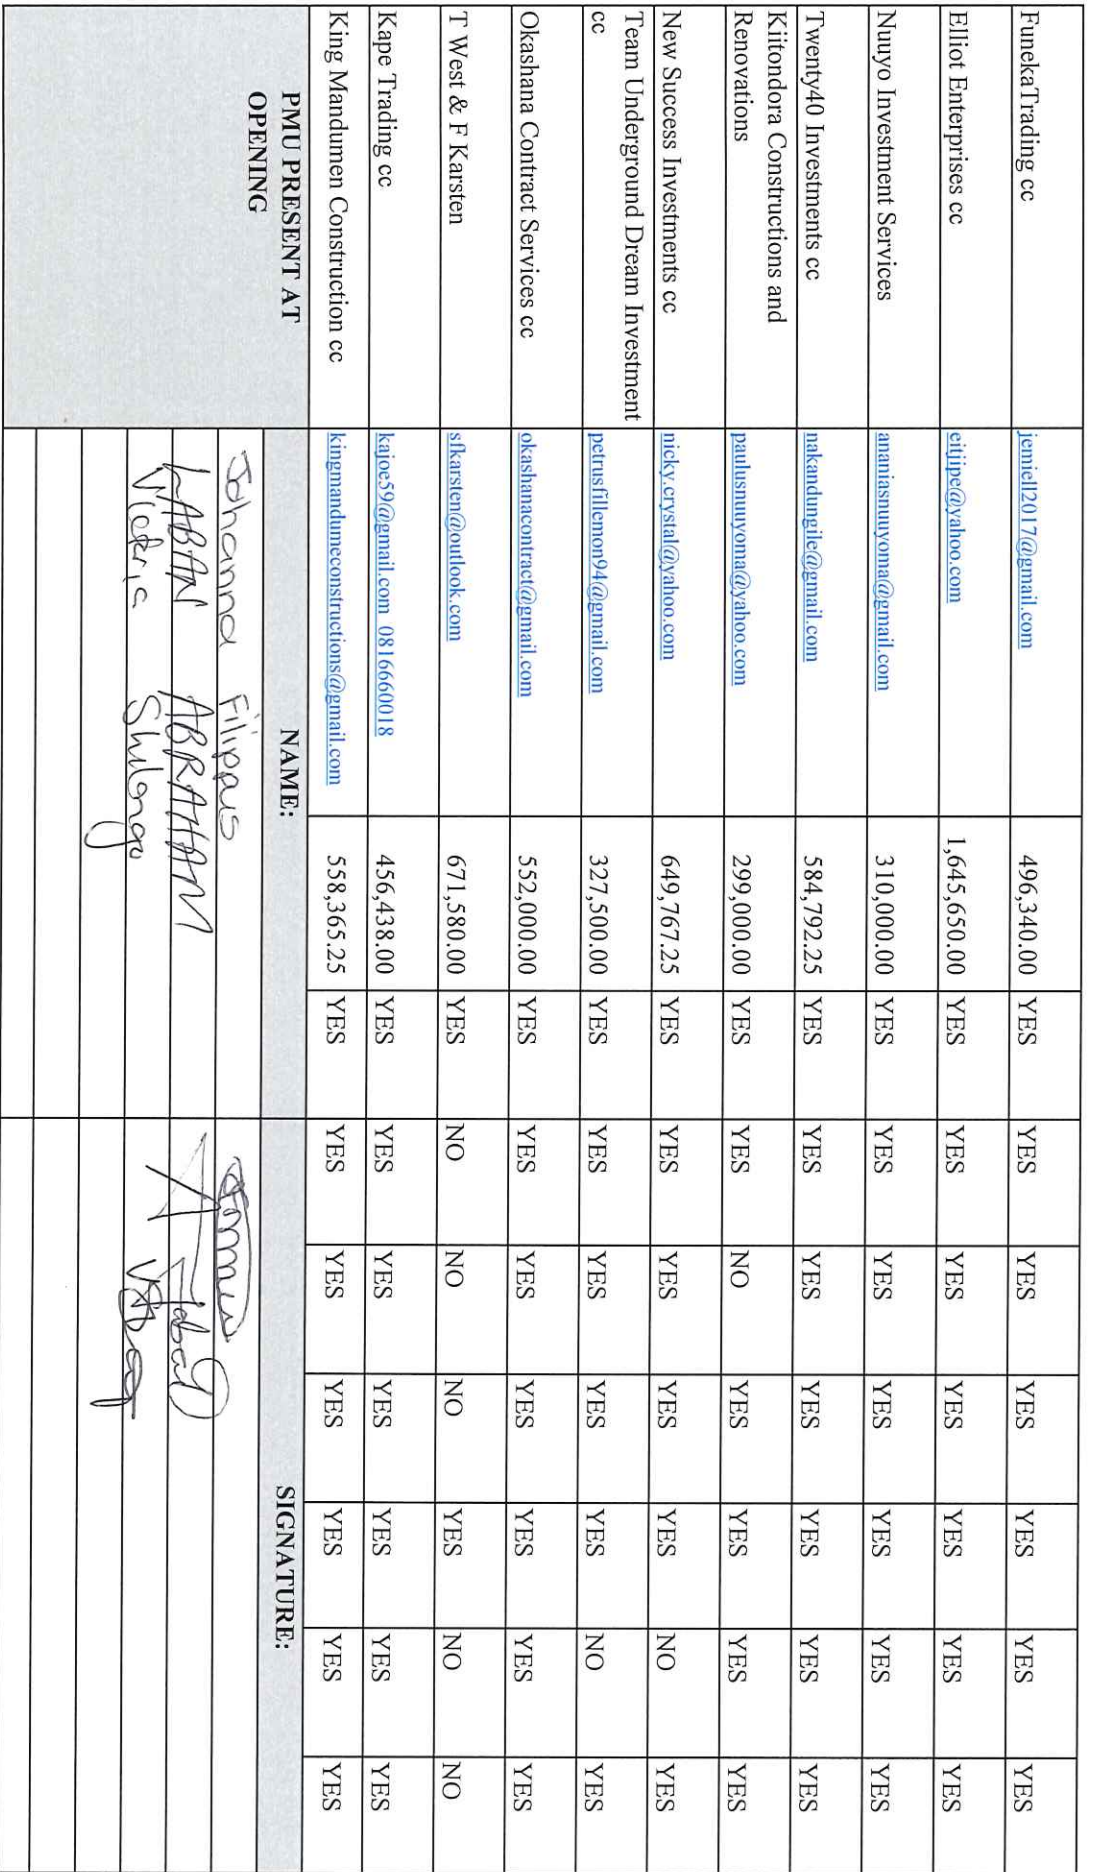 FunekaTrading cc jemiell2017@gmail.com 496,340.00 YES YES YES YES YES YES YES
Elliot Enterprises cc eitjipe@yahoo.com 1,645,650.00 YES YES YES YES YES YES YES
Nuuyo Investment Services ananiasnuuyoma@gmail.com 310,000.00 YES YES YES YES YES YES YES
Twenty40 Investments cc nakandungile@gmail.com 584,792.25 YES YES YES YES YES YES YES
Kiitondora Constructions and
Renovations paulusnuuyoma@yahoo.com 299,000.00 YES YES NO YES YES YES YES
New Success Investments cc nicky.crystal@yahoo.com 649,767.25 YES YES YES YES YES NO YES
Team Underground Dream Investment
cc petrusfillemon94@gmail.com 327,500.00 YES YES YES YES YES NO YES
Okashana Contract Services cc okashanacontract@gmail.com 552,000.00 YES YES YES YES YES YES YES
T West & F Karsten sfkarsten@outlook.com 671,580.00 YES NO NO NO YES NO NO
Kape Trading cc kajoe59@gmail.com 0816660018 456,438.00 YES YES YES YES YES YES YES
King Mandumen Construction cc kingmandumeconstructions@gmail.com 558,365.25 YES YES YES YES YES YES YES
PMU PRESENT AT
OPENING
NAME: SIGNATURE:
Johanna Filippus
LABAN ABRAHAM
Victoria Shilongo